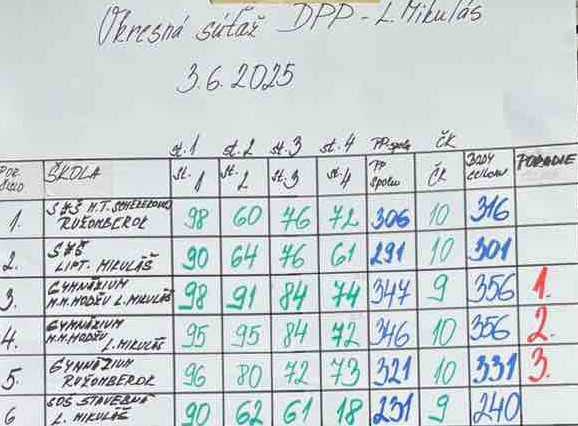 Okresná súťaž DPP - L. Mikuláš
3.6.2025
st.1 st.2 st.3 st.4 PP spolu ČK
POR. ČÍSLO ŠKOLA st. 1 st. 2 st. 3 st. 4 PP spolu ČK BODY celkom PORADIE
1. SZŠ M.T. SCHEREROVEJ RUŽOMBEROK 98 60 76 72 306 10 316
2. SZŠ LIPT. MIKULÁŠ 90 64 76 61 291 10 301
3. GYMNÁZIUM M.M. HODŽU L. MIKULÁŠ 98 91 84 74 347 9 356 1.
4. GYMNÁZIUM M.M. HODŽU L. MIKULÁŠ 95 95 84 72 346 10 356 2.
5. GYMNÁZIUM RUŽOMBEROK 96 80 72 73 321 10 331 3.
6 SOŠ STAVEBNÁ L. MIKULÁŠ 90 62 61 18 231 9 240